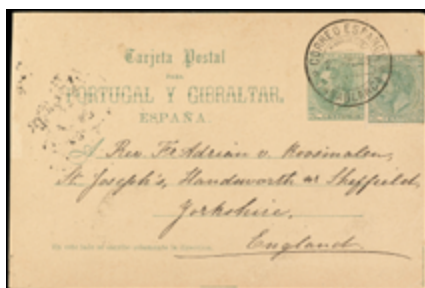 Tarjeta Postal
PARA
PORTUGAL Y GIBRALTAR,
ESPAÑA.
CORREO ESPAÑOL
A Rev. Fr Adrian v. Roosmalen,
St. Joseph's, Handsworth nr Sheffield,
Yorkshire,
England.